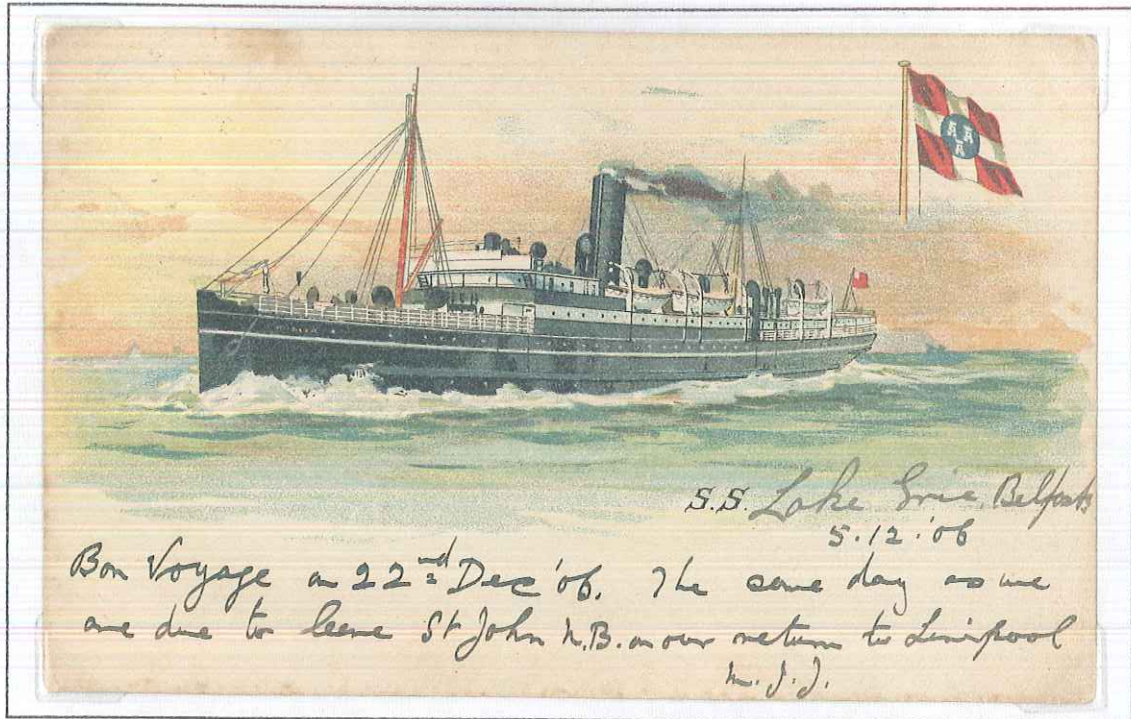 S.S. Lake Erie, Belfast
5.12.'06
Bon Voyage on 22nd Dec '06. The same day as we
are due to leave St John N.B. on our return to Liverpool
M.J.J.